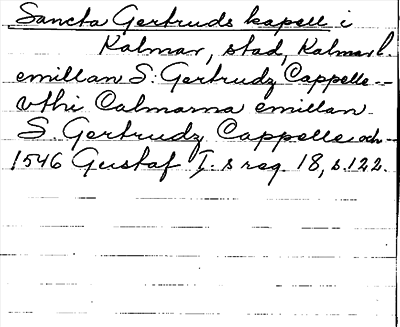 Sancta Gertruds kapell i
Kalmar, stad, Kalmar l.
emillan S. Gertrudz Cappelle --
vthi Calmarna emillan
S. Gertrudz Cappelle och --
1546 Gustaf I. s reg. 18, s. 122.